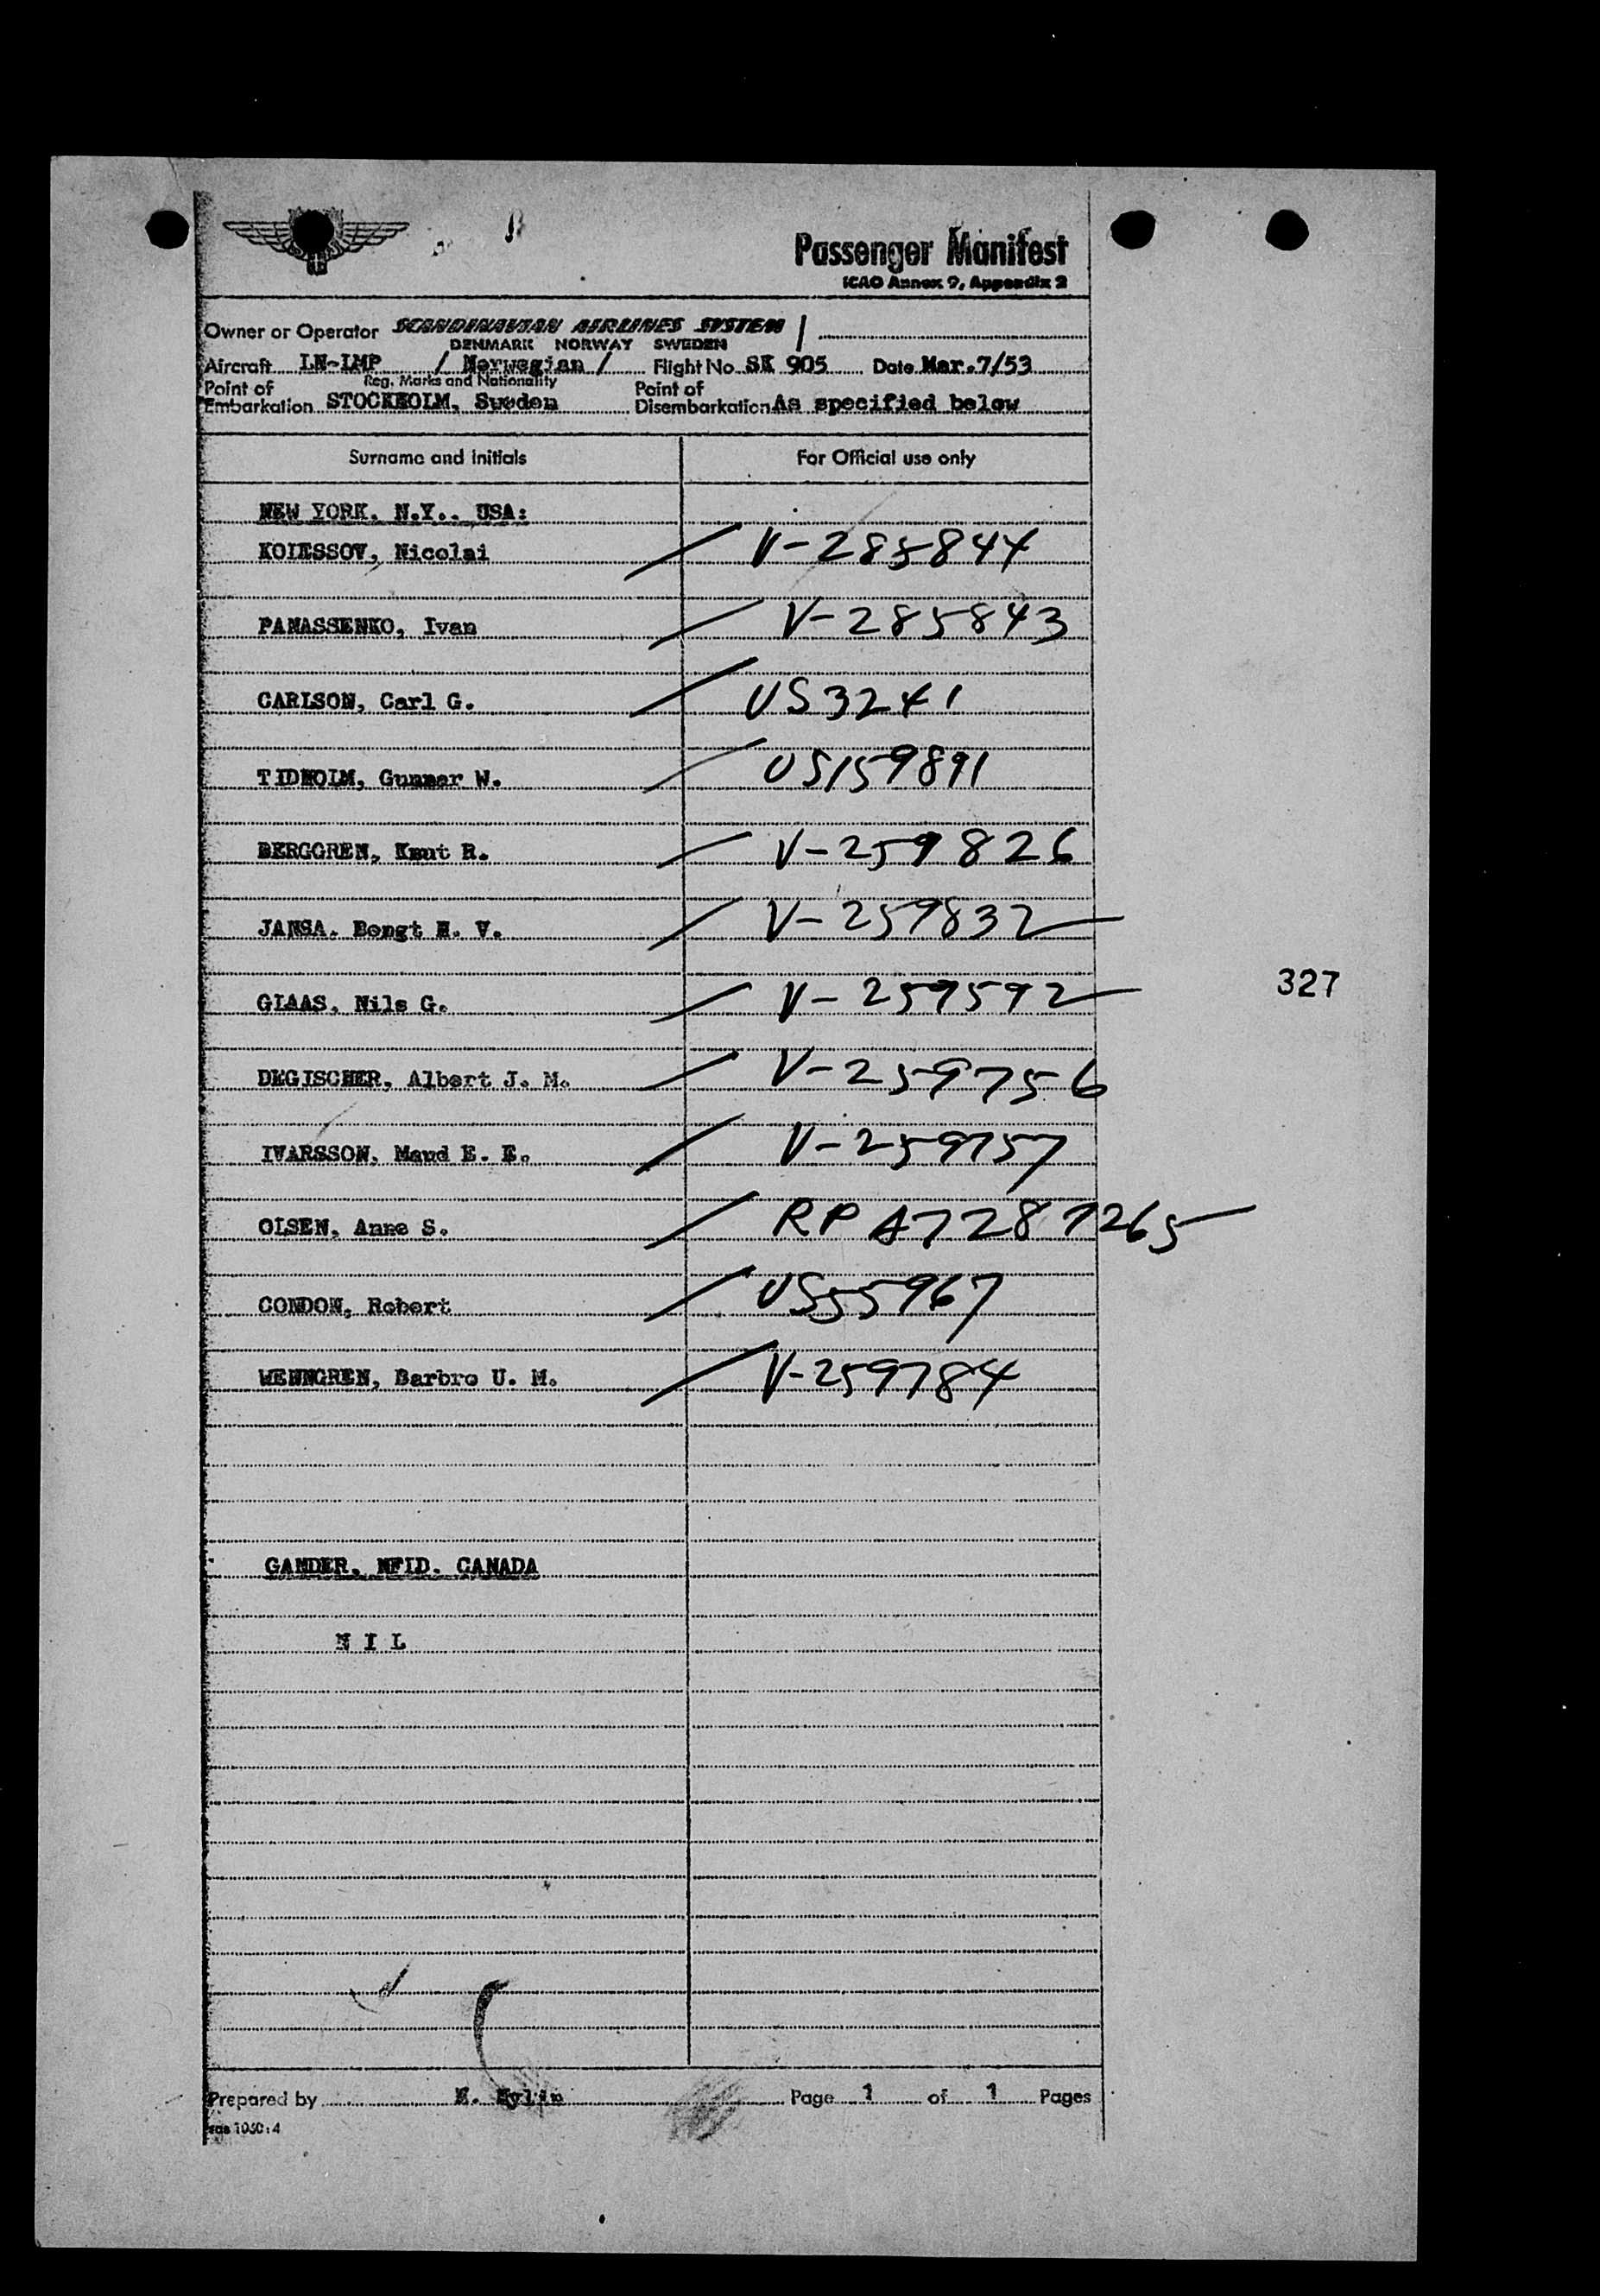 Passenger Manifest
ICAO Annex 9, Appendix 2
Owner or Operator SCANDINAVIAN AIRLINES SYSTEM /
DENMARK NORWAY SWEDEN
Aircraft LN-LMP / Norwegian / Flight No. SK 905 Date Mar.7/53
Reg. Marks and Nationality
Point of Embarkation STOCKHOLM, Sweden Point of Disembarkation As specified below
Surname and initials For Official use only
NEW YORK, N.Y., USA:
KOLESSOV, Nicolai V-285844
PANASSENKO, Ivan V-285843
CARLSON, Carl G. US3241
TIDHOLM, Gunnar W. US159891
BERGGREN, Knut R. V-259826
JANSA, Bengt H. V. V-259832
327
GLAAS, Nils G. V-259592
DEGISCHER, Albert J. M. V-259756
IVARSSON, Maud E. E. V-259757
OLSEN, Anne S. RP A7287265
CONDON, Robert US55967
WENNGREN, Barbro U. M. V-259784
GANDER, NFLD. CANADA
N I L
Prepared by Page 1 of 1 Pages
sas 1060:4